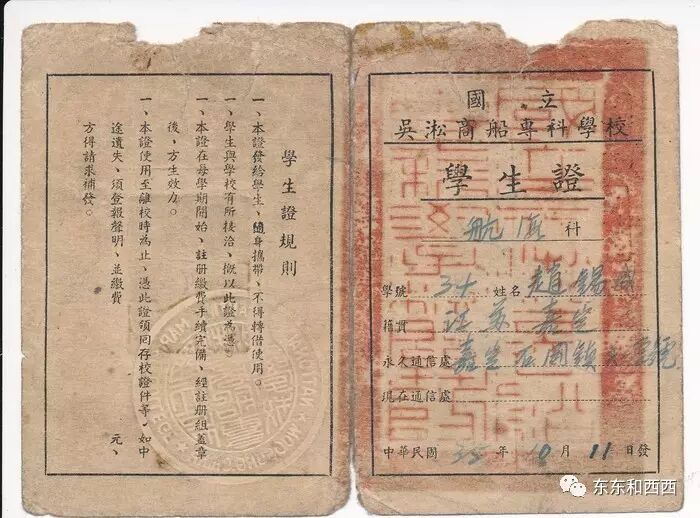 國立
吳淞商船專科學校
學生證
航海科
學號 34 姓名 趙錫
籍貫 江蘇嘉定
永久通信處 嘉定石岡鎮
現在通信處
中華民國 35 年 10 月 11 日發
學生證規則
一、本證發給學生、隨身攜帶、不得轉借使用。
一、學生與學校有所接洽、概以此證為憑。
一、本證在每學期開始、註冊繳費手續完備、經註冊組蓋章
後、方生效力。
一、本證使用至離校時為止、憑此證領回存校證件等、如中
途遺失、須登報聲明、並繳費　元、
方得請求補發。
东东和西西